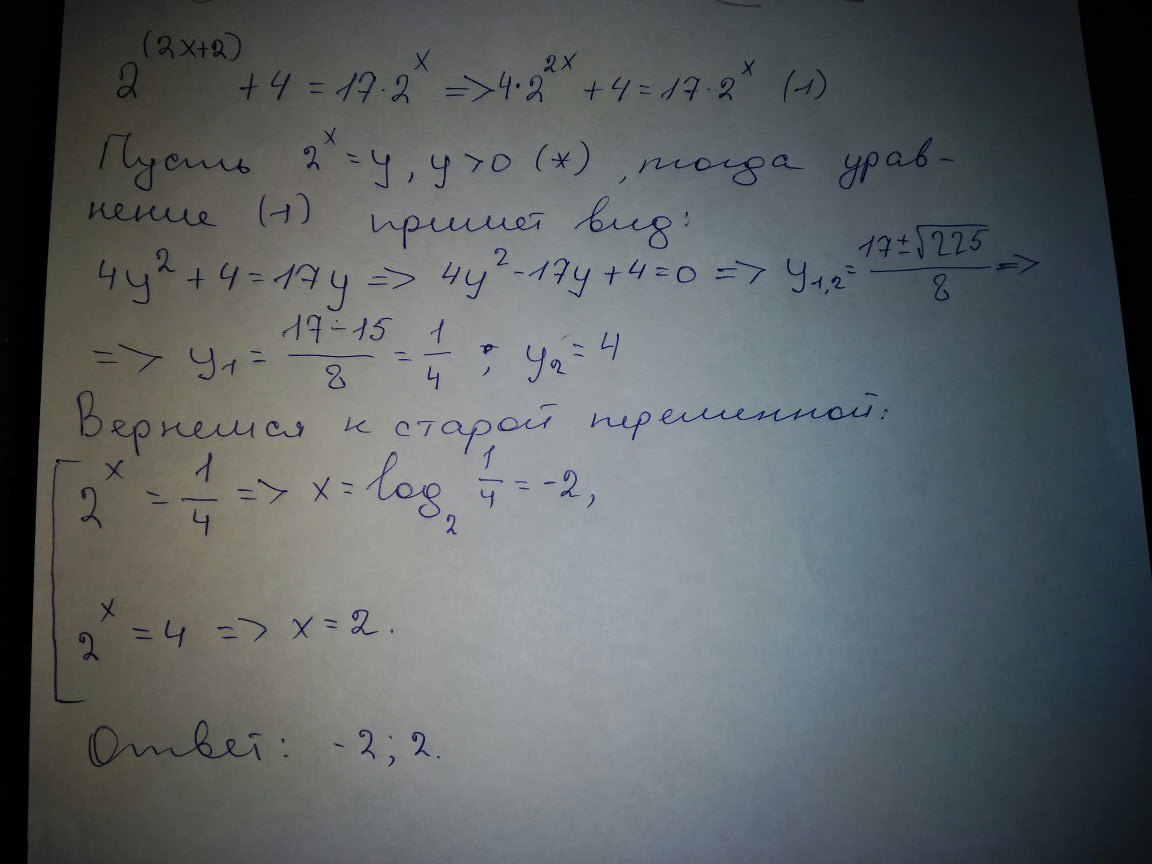 2^(2x+2) + 4 = 17·2^x => 4·2^2x + 4 = 17·2^x (1)
Пусть 2^x = y, y > 0 (*), тогда урав-
нение (1) примет вид:
4y² + 4 = 17y => 4y² - 17y + 4 = 0 => y₁,₂ = (17 ± √225)/8 =>
=> y₁ = (17 - 15)/8 = 1/4 ; y₂ = 4
Вернемся к старой переменной:
2^x = 1/4 => x = log₂ 1/4 = -2,
2^x = 4 => x = 2.
Ответ: -2; 2.